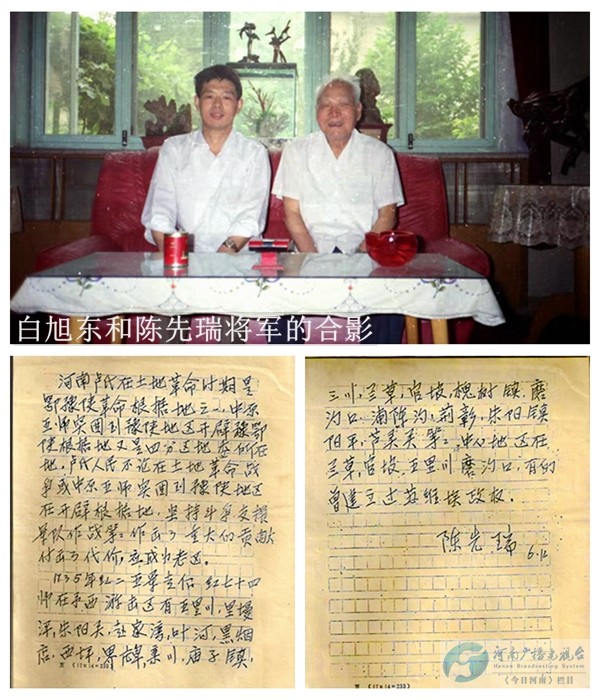 白旭东和陈先瑞将军的合影
河南卢氏在土地革命时期是
鄂豫陕革命根据地之一,中原
突围到豫陕地区开辟豫鄂
陕根据地又是四分区地委所在
地,卢氏人民不论在土地革命战
争或中原突围到豫陕地区
在开辟根据地,坚持斗争支援
部队作战等,作出了重大的贡献
付出了代价,应成为老区。
1935年红二五军主力红七十四
师在豫西游击区有五里川,
朱阳关,叶河,黑烟
店,西坪,栾川,庙子镇,
三川,兰草,官坡,槐树镇,磨
沟口,朱阳镇
阳平,等,中心地区在
兰草,官坡,五里川磨沟口,有的
曾建立过苏维埃政权。
陈先瑞
6.12
河南广播电视台
Henan Broadcasting System
《今日河南》栏目